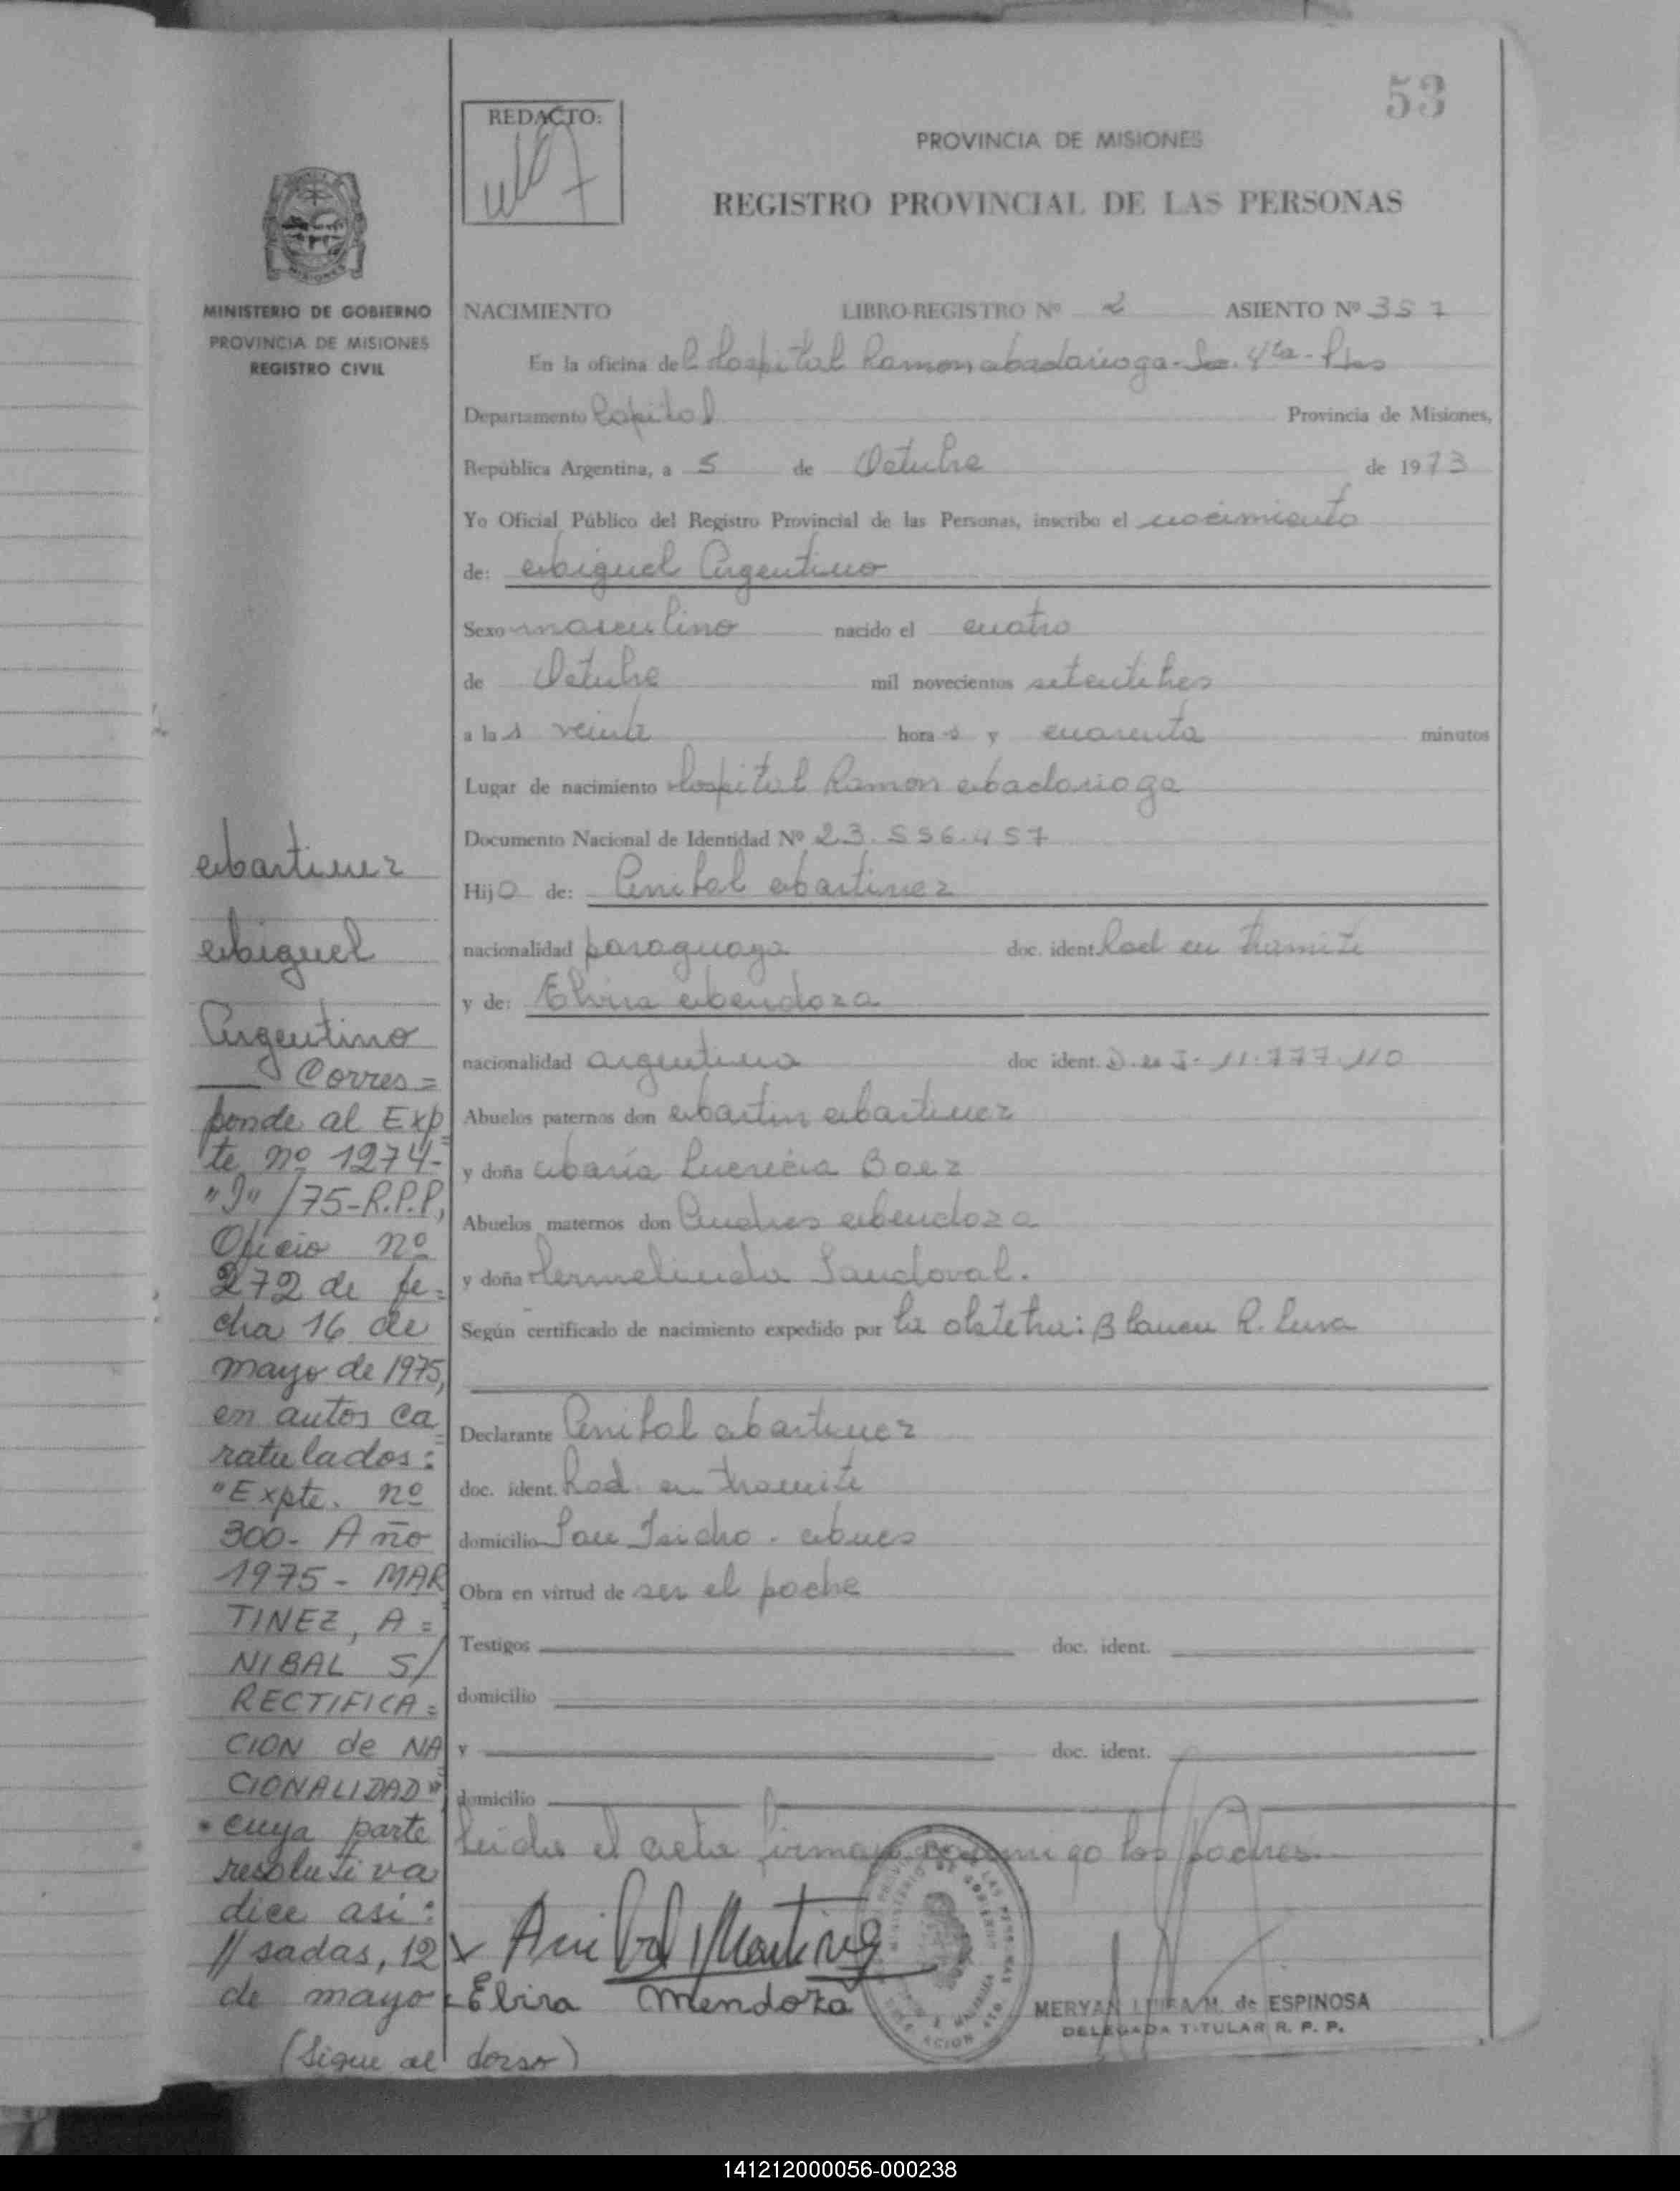 53
REDACTO:
PROVINCIA DE MISIONES
REGISTRO PROVINCIAL DE LAS PERSONAS
MINISTERIO DE GOBIERNO
PROVINCIA DE MISIONES
REGISTRO CIVIL
NACIMIENTO LIBRO-REGISTRO Nº 2 ASIENTO Nº 357
En la oficina del Hospital Ramon Madariaga - Sec. 4ta - Pdas
Departamento Capital Provincia de Misiones,
República Argentina, a 5 de Octubre de 1973
Yo Oficial Público del Registro Provincial de las Personas, inscribo el nacimiento
de: Miguel Argentino
Sexo masculino nacido el cuatro
de Octubre mil novecientos setentitres
a las veinte horas y cuarenta minutos
Lugar de nacimiento Hospital Ramon Madariaga
Documento Nacional de Identidad Nº 23.556.457
Hijo de: Anibal Martinez
nacionalidad paraguaya doc. ident. Rad en tramite
y de: Elvira Mendoza
nacionalidad argentina doc ident. D.N.I. 11.777.110
Abuelos paternos don Martin Martinez
y doña María Lucrecia Baez
Abuelos maternos don Andres Mendoza
y doña Hermelinda Sandoval.
Según certificado de nacimiento expedido por la obstetra: Blanca R. Luna
Declarante Anibal Martinez
doc. ident. Rad. en tramite
domicilio San Isidro - Mnes
Obra en virtud de ser el padre
Testigos doc. ident.
domicilio
y doc. ident.
domicilio
Leida el acta firman conmigo los padres
Anibal Martinez
Elvira Mendoza
MERYAN LUISA M. de ESPINOSA
DELEGADA TITULAR R. P. P.
Martinez
Miguel
Argentino
Corres=
ponde al Exp=
te nº 1274-
"J" /75-R.P.P,
Oficio nº
272 de fe=
cha 16 de
mayo de 1975,
en autos ca=
ratulados:
"Expte. nº
300- Año
1975 - MAR
TINEZ, A=
NIBAL S/
RECTIFICA=
CION de NA
CIONALIDAD"
cuya parte
resolutiva
dice asi:
// sadas, 12
de mayo
(Sigue al dorso)
141212000056-000238